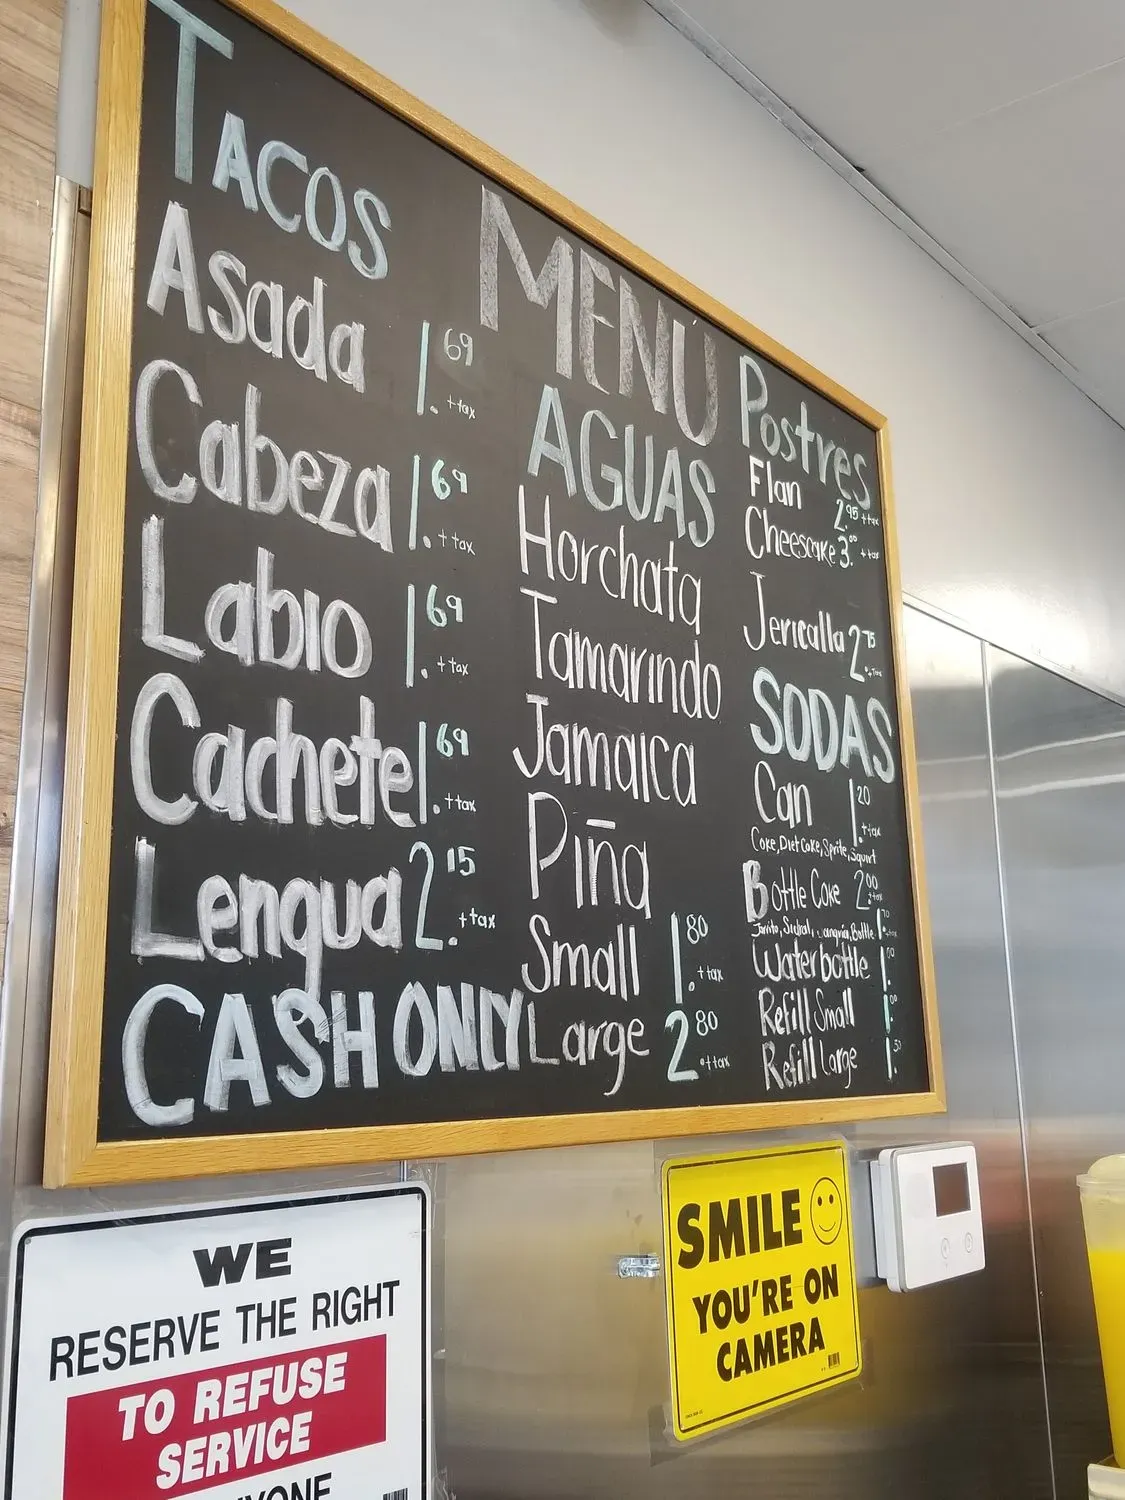 TACOS
Asada 1.69 + tax
Cabeza 1.69 + tax
Labio 1.69 + tax
Cachete 1.69 + tax
Lengua 2.15 + tax
CASH ONLY
MENÚ
AGUAS
Horchata
Tamarindo
Jamaica
Piña
Small 1.80 + tax
Large 2.80 + tax
Postres
Flan 2.95 + tax
Cheesecake 3.00 + tax
Jericalla 2.75 + tax
SODAS
Can 1.20 + tax
Coke, Diet Coke, Sprite, Squirt
Bottle Coke 2.00 + tax
Jarrito, Sidral, Sangria, Bottle 1.70 + tax
Water bottle 1.00
Refill Small 1.00
Refill Large 1.50
WE
RESERVE THE RIGHT
TO REFUSE
SERVICE
SMILE
YOU'RE ON
CAMERA